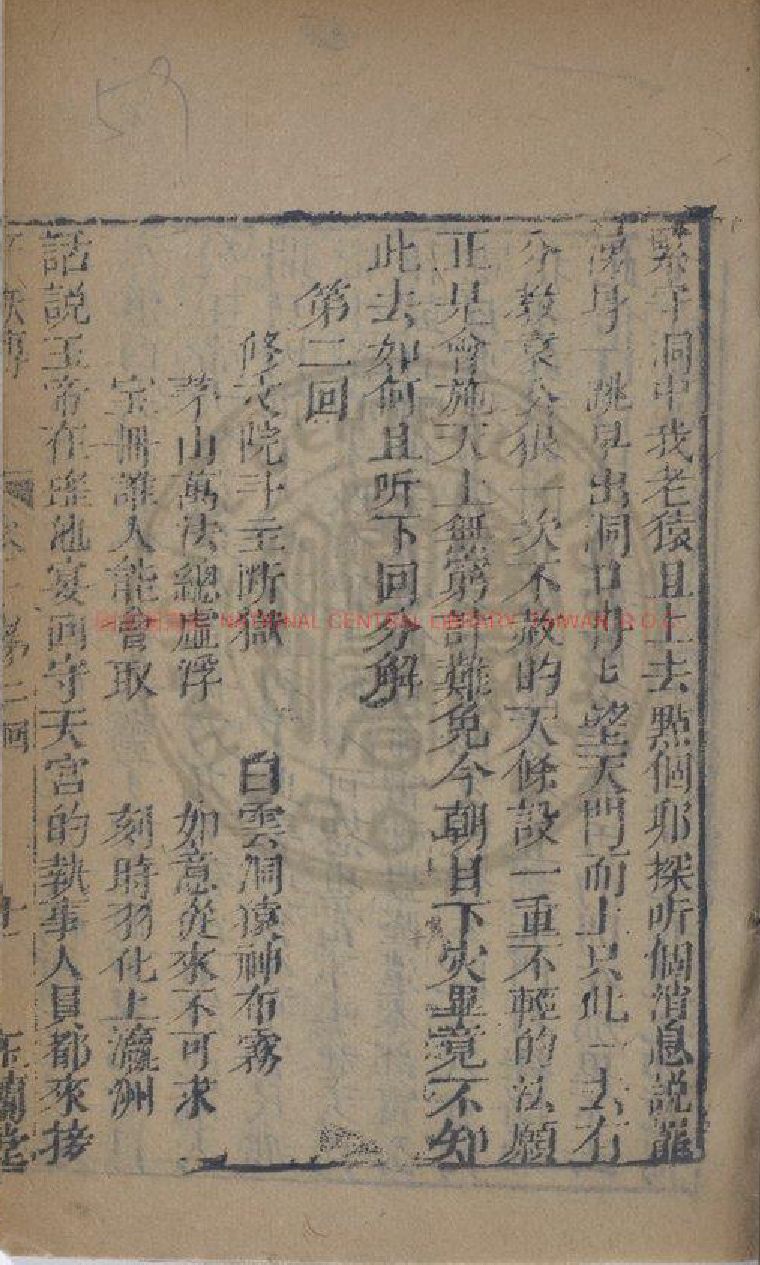 緊守洞中我老猿且上去點個卯探听個消息說罷
湧身一跳早出洞口冉七望天門而上只此一去有
分教袁公狠一次不赦的天條設一重不輕的法願
正是會施天上無窮計難免今朝目下灾畢竟不知
此去如何且听下回分解
第二回
修文院斗主断獄 白雲洞猿神布霧
茅山萬法總虛浮 如意從來不可求
宝冊誰人能會取 刻時羽化上瀛洲
話說玉帝在瑤池宴回守天宫的執事人員都來接
妖傳 卷一第二回 十一 玉蘭堂
59
NATIONAL CENTRAL LIBRARY, TAIWAN, R.O.C.